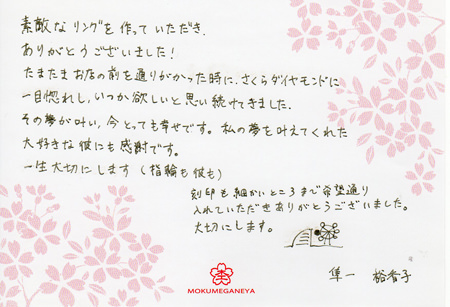 素敵なリングを作っていただき、
ありがとうございました！
たまたまお店の前を通りがかった時に、さくらダイヤモンドに
一目惚れし、いつか欲しいと思い続けてきました。
その夢が叶い、今とっても幸せです。私の夢を叶えてくれた
大好きな彼にも感謝です。
一生大切にします（指輪も彼も）
刻印も細かいところまで希望通り
入れていただきありがとうございました。
大切にします。
隼一 裕香子
MOKUMEGANEYA